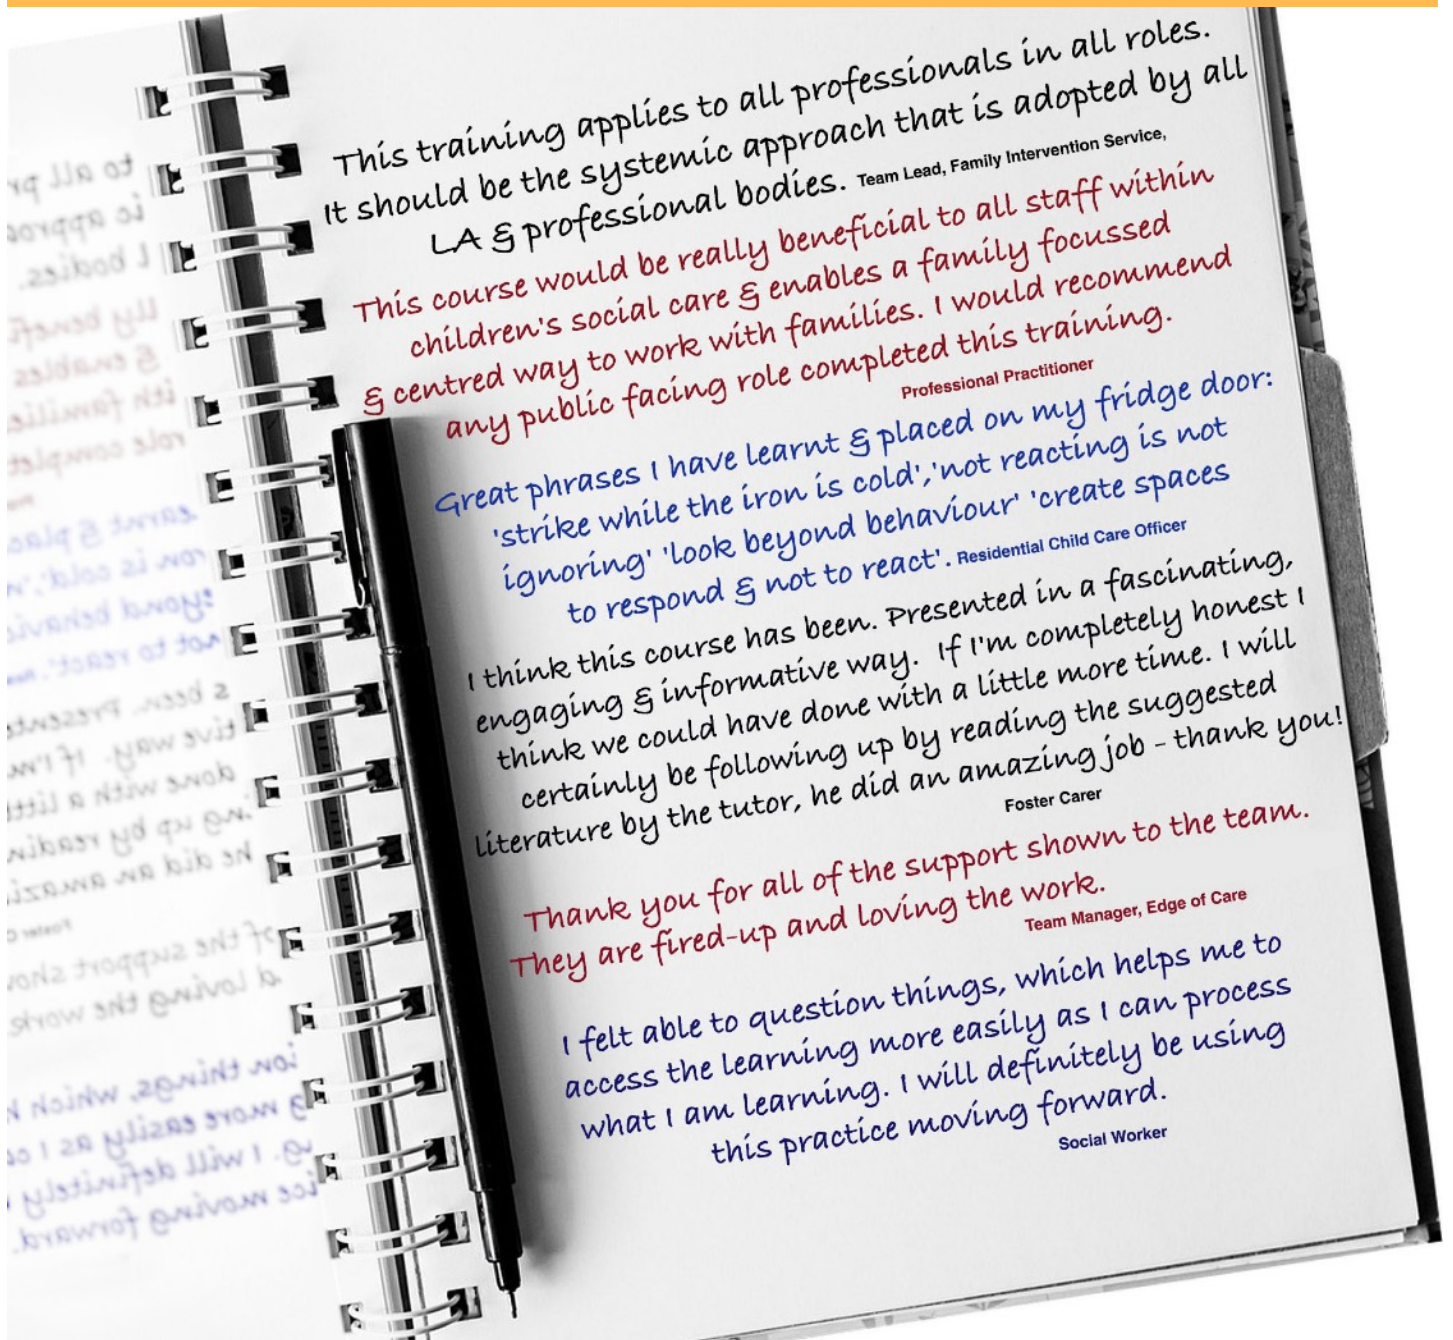 This training applies to all professionals in all roles.
It should be the systemic approach that is adopted by all
LA & professional bodies. Team Lead, Family Intervention Service,
This course would be really beneficial to all staff within
children's social care & enables a family focussed
& centred way to work with families. I would recommend
any public facing role completed this training.
Professional Practitioner
Great phrases I have learnt & placed on my fridge door:
'strike while the iron is cold','not reacting is not
ignoring' 'look beyond behaviour' 'create spaces
to respond & not to react'. Residential Child Care Officer
I think this course has been. Presented in a fascinating,
engaging & informative way. If I'm completely honest I
think we could have done with a little more time. I will
certainly be following up by reading the suggested
literature by the tutor, he did an amazing job - thank you!
Foster Carer
Thank you for all of the support shown to the team.
They are fired-up and loving the work.
Team Manager, Edge of Care
I felt able to question things, which helps me to
access the learning more easily as I can process
what I am learning. I will definitely be using
this practice moving forward.
Social Worker